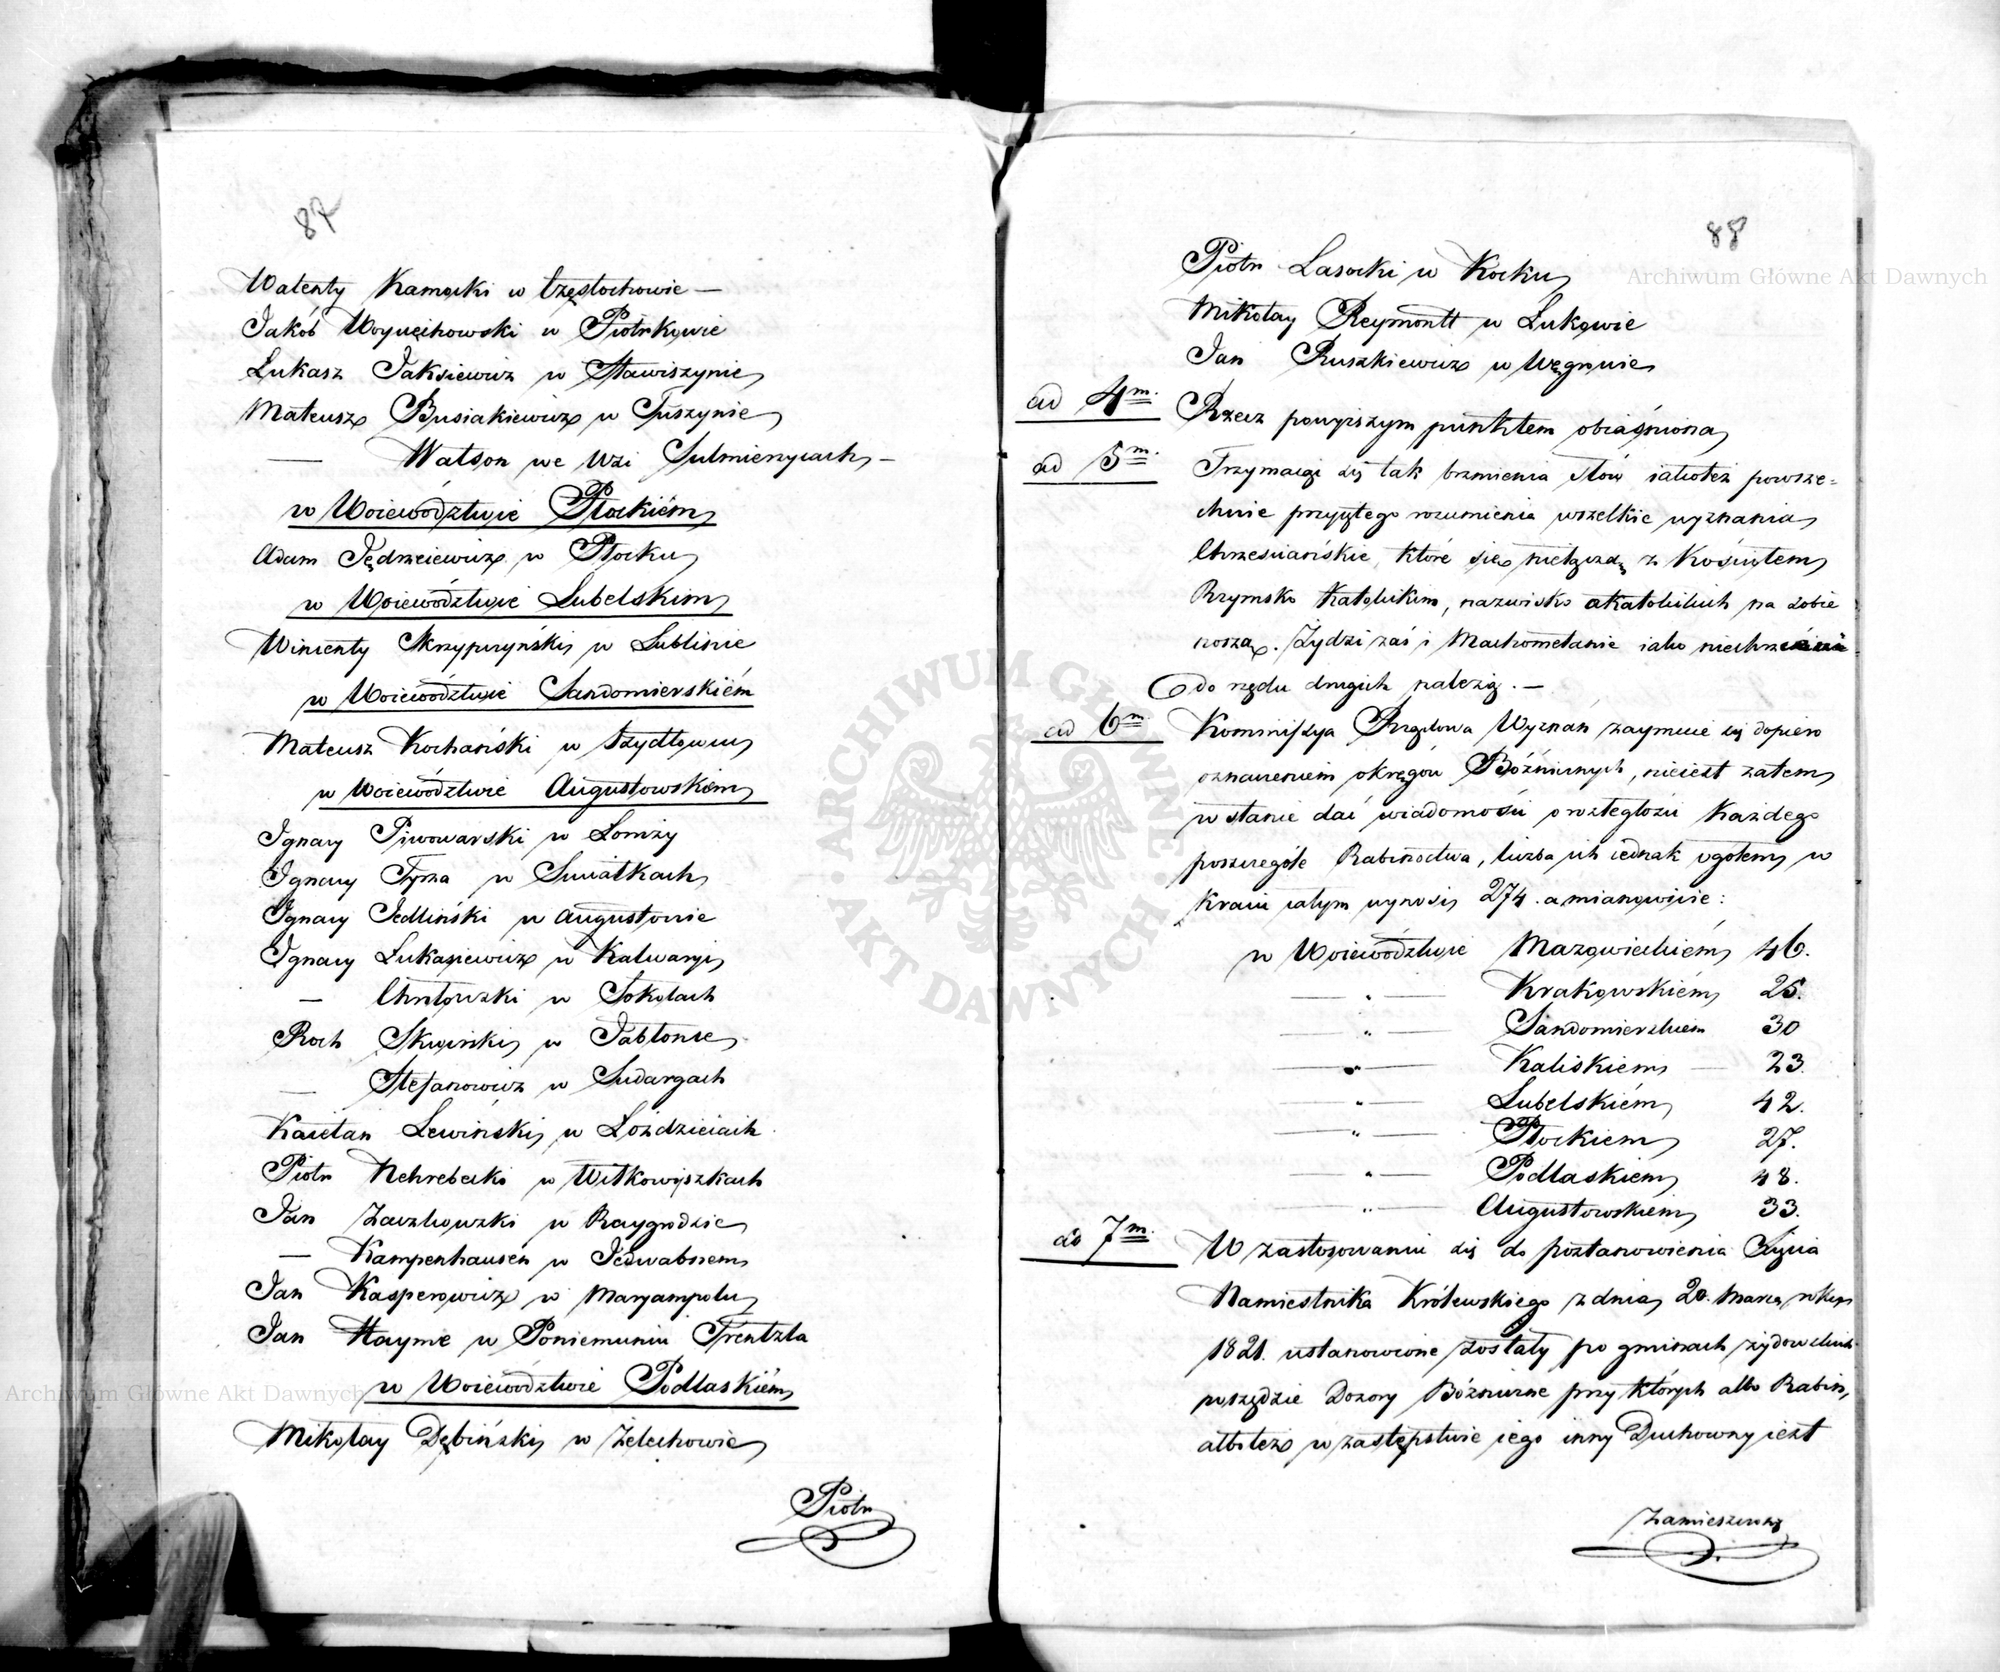 87
Walenty Kamocki w Częstochowie —
Jakób Woyciechowski w Piotrkowie
Łukasz Jaksiewicz w Stawiszynie
Mateusz Busiakiewicz w Tuszynie
— Watson we Wsi Sulmierzycach —
w Woiewództwie Płockiém
Adam Jędrzeiewicz w Płocku
w Woiewództwie Lubelskim
Wincenty Skrzypczyński w Lublinie
w Woiewództwie Sandomierskiém
Mateusz Kochański w Szydłowcu
w Woiewództwie Augustowskiem
Ignacy Piwowarski w Łomży
Ignacy Tyszka w Sniatkach
Ignacy Jedliński w Augustowie
Ignacy Łukasiewicz w Kalwaryi
— w Sokołach
Roch Skwirski w Jabłonce
— Stefanowicz w Sudargach
Kaietan Lewiński w Łoździeiach
Piotr Nehrebecki w Wiłkowyszkach
Jan Zaczkowski w Raygrodzie
— Kampenhausen w Jedwabnem
Jan Kasperowicz w Maryampolu
Jan Hayme w Poniemuniu Frentzla
w Woiewództwie Podlaskiém
Mikołay Dębiński w Żelechowie
Piotr
88
Piotr Lasocki w Kocku
Mikołay Reymontt w Łukowie
Jan Ruszkiewicz w Węgrowie
ad 4m. Rzecz powyższym punktem obiaśniona
ad 5m. Trzymaiąc się tak brzmienia słów iakoteż powsze=
chnie przyiętego rozumienia wszelkie wyznania
Chrześciańskie, które się niełączą z Kościołem
Rzymsko Katolickim, nazwisko akatolickich na sobie
noszą. Żydzi zaś i Machometanie iako niechrześcianie
do rzędu drugich należą. —
ad 6m. Kommissya Rządowa Wyznań zaymuie się dopiero
oznaczeniem okręgów Bóżniczych, nieiest zatem
w stanie dać wiadomości o rozległości każdego
poszczególe Rabinostwa, liczba ich iednak ogółem w
Kraiu całym wynosi 274. a mianowicie:
w Woiewództwie Mazowieckiém 46.
— " — Krakowskiém 25.
— " — Sandomierskiem 30
— " — Kaliskiem — 23.
— " — Lubelskiém 42.
— " — Płockiem 27.
— " — Podlaskiem 48.
— " — Augustowskiem 33.
ad 7m. W zastosowaniu się do postanowienia Xięcia
Namiestnika Królewskiego z dnia 20. Marca roku
1821. ustanowione zostały po gminach żydowskich
wszędzie Dozory Bóżnicze przy których albo Rabin,
alboteż w zastępstwie iego inny Duchowny iest
Zamieszczony
Archiwum Główne Akt Dawnych
Archiwum Główne Akt Dawnych
· ARCHIWUM GŁÓWNE · AKT DAWNYCH